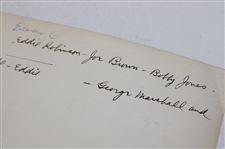 Edward C
Eddie Robinson - Joe Brown - Bobby Jones -
- George Marshall and
- Eddie